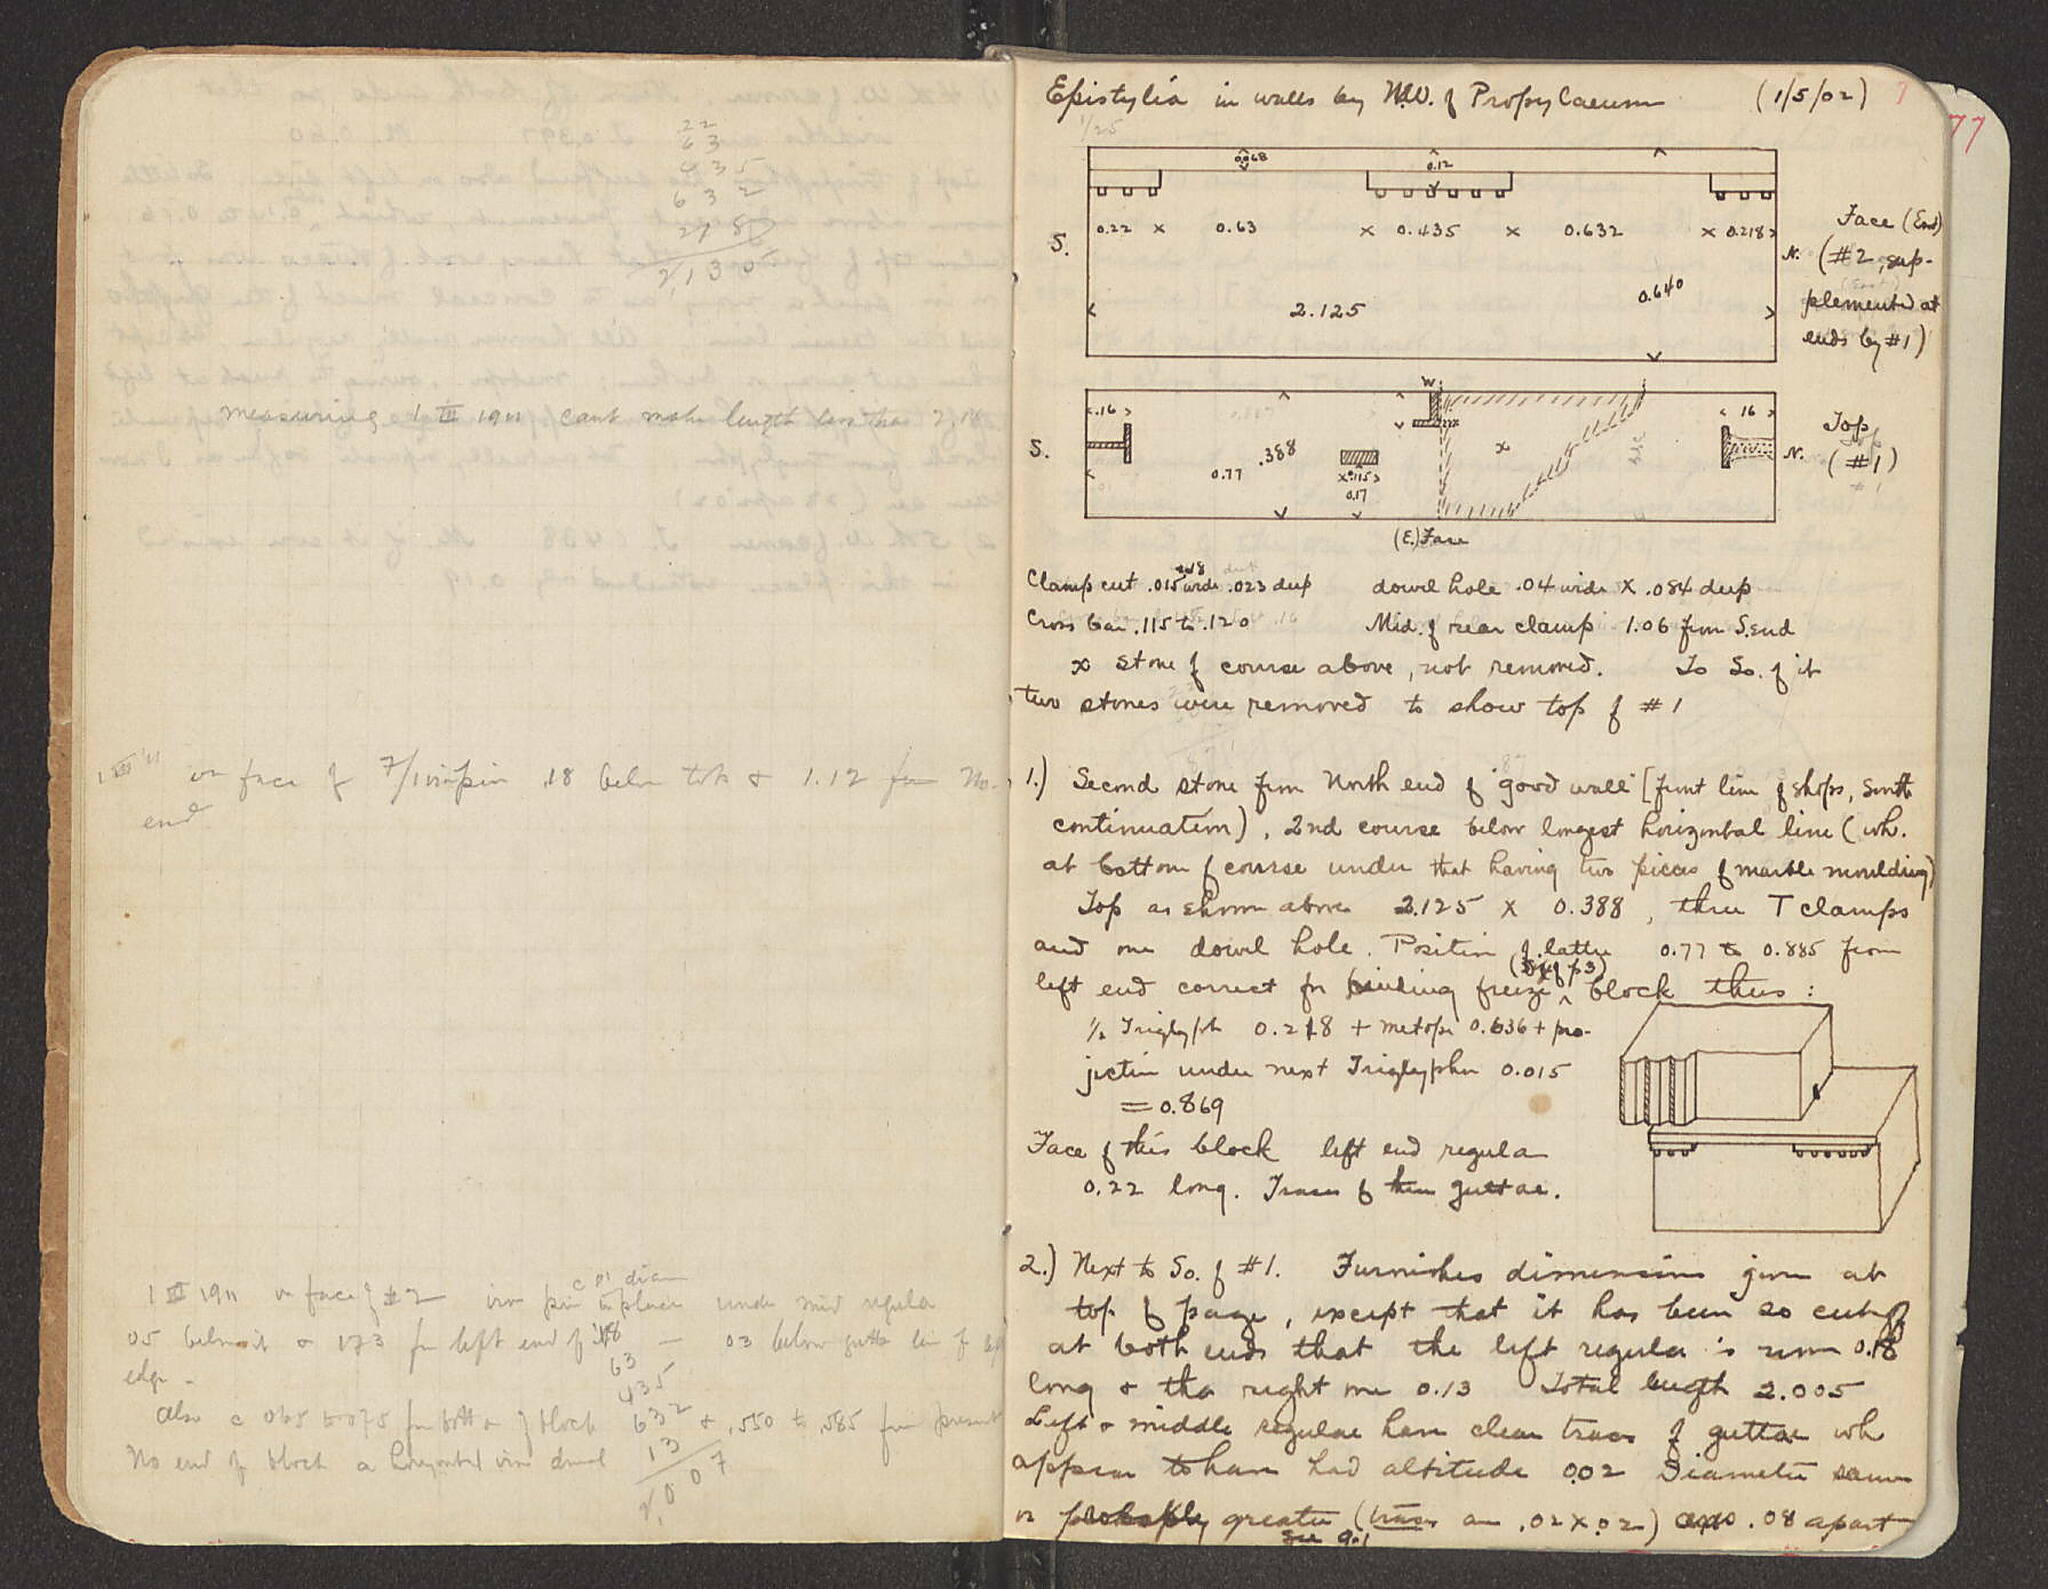 22
63
435
632
218
2,130
measuring 1 III 1911 cant make length less than 2.18
1 III '11 on face of 7/1 iron pin .18 below top & 1.12 from No.
end
1 III 1911 on face of #2 iron pin in place under mid regula
c 01 diam
05 below it & 173 fr left end of — 03 below gutta line fr left
edge -
Also c 065 to 075 from bottom of block & .550 to .585 from present
No end of block a horizontal iron dowel
18
63
435
632
13
2,007
Epistylia in walls by N.W. of Propylaeum (1/5/02) 7
77
1/25
0.068
0.12
S.
0.22 x 0.63 x 0.435 x 0.632 x 0.218
N.
2.125
0.640
Face (East)
(#2, sup-
plemented at
ends by #1)
W.
S.
.16
0.77
.388
0.115
0.17
x
16
N.
Top
(#1)
(E.) Face
Clamp cut .015 wide .023 deep dowel hole .04 wide x .084 deep
Cross bar .115 to .120 Mid. of rear clamp 1.06 from S. end
x Stone of course above, not removed. To So. of it
two stones were removed to show top of #1
1.) Second stone from North end of "good wall" [front line of shops, south
continuation), 2nd course below longest horizontal line (wh.
at bottom of course under that having two pieces of marble moulding)
Top as shown above 2.125 x 0.388, three T clamps
and one dowel hole. Position of latter 0.77 to 0.885 from
left end correct for binding frieze block thus:
½ Triglyph 0.218 + metope 0.636 + pro-
jection under next Triglyphon 0.015
= 0.869
Face of this block left end regula
0.22 long. Traces of three guttae.
2.) Next to So. of #1. Furnishes dimensions given at
top of page, except that it has been so cut off
at both ends that the left regula is now 0.18
long & the right one 0.13 Total length 2.005
Left & middle regulae have clear traces of guttae wh
appear to have had altitude 0.02 Diameter same
or probably greater (traces are .02 x .02) .08 apart
see 9.1